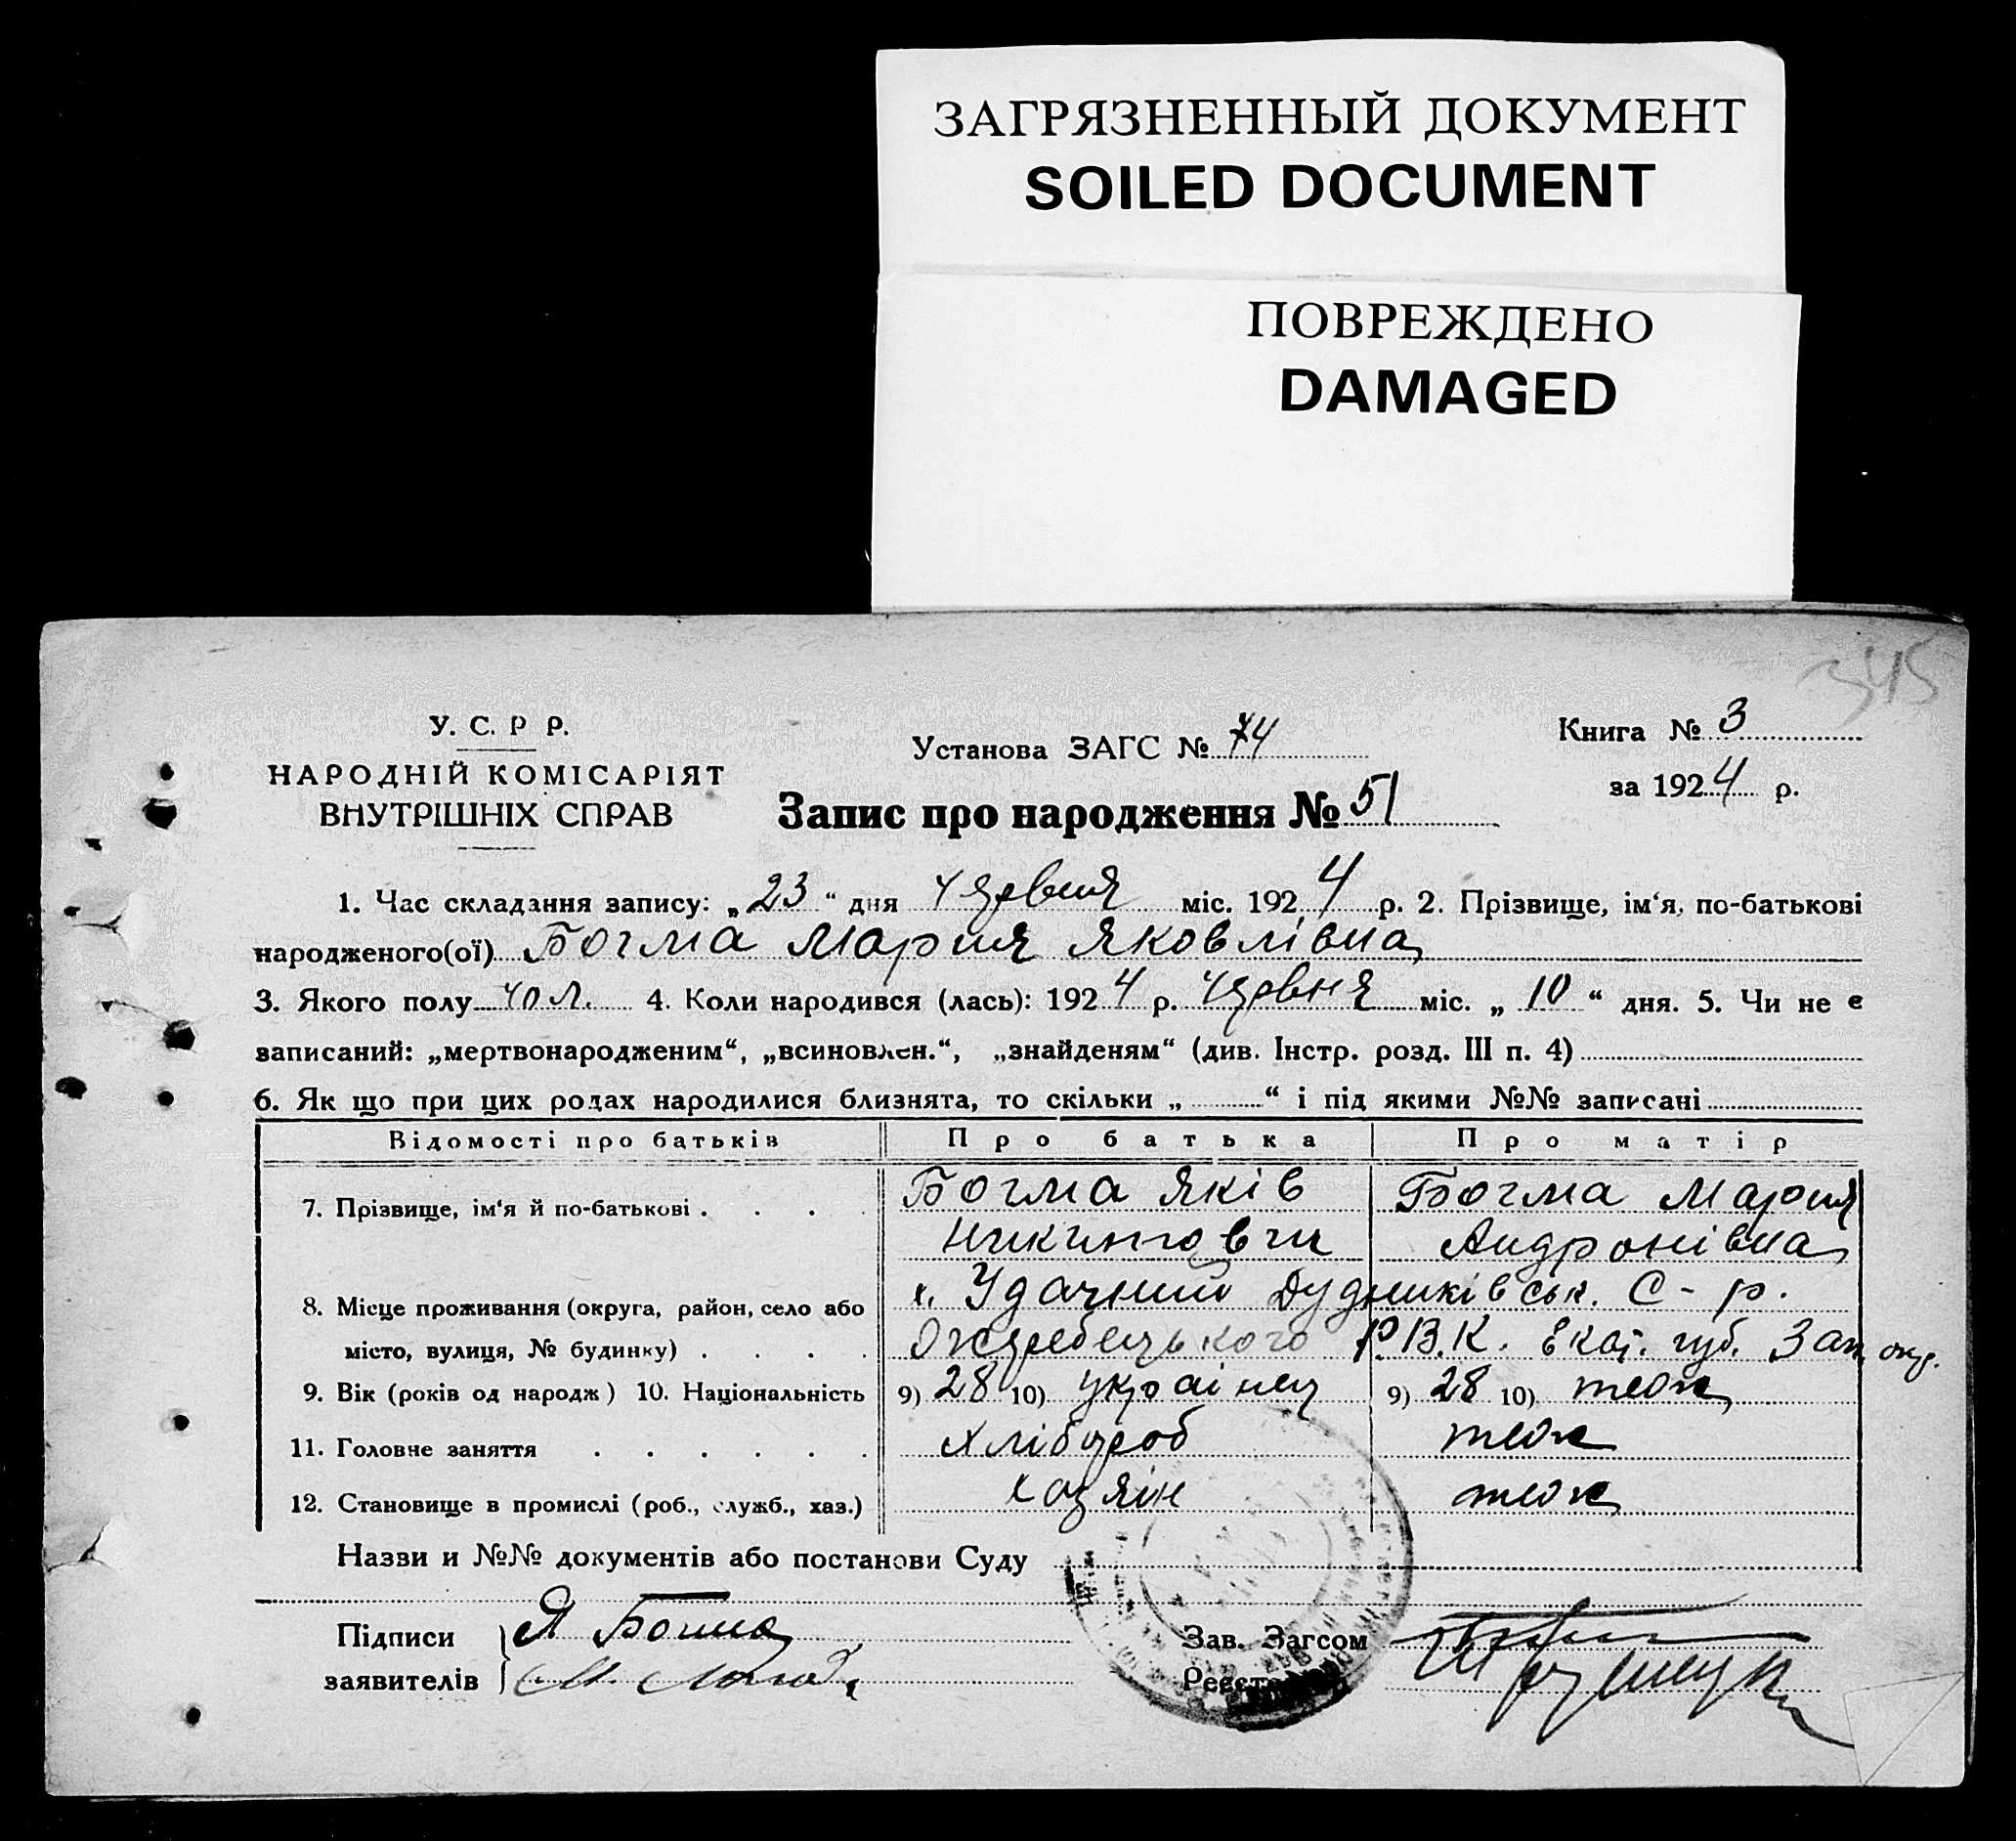 ЗАГРЯЗНЕННЫЙ ДОКУМЕНТ
SOILED DOCUMENT
ПОВРЕЖДЕНО
DAMAGED
345
У. С. Р Р.
НАРОДНІЙ КОМІСАРІЯТ
ВНУТРІШНІХ СПРАВ
Установа ЗАГС № 74
Книга № 3
за 1924 р.
Запис про народження № 51
1. Час складання запису: „23“ дня червня міс. 1924 р. 2. Прізвище, ім‘я, по-батькові
народженого(ої) Богма Мария Яковлівна
3. Якого полу чол. 4. Коли народився (лась): 1924 р. червня міс. „10“ дня. 5. Чи не є
записаний: „мертвонародженим“, „всиновлен.“, „знайденям“ (див. Інстр. розд. III п. 4)
6. Як що при цих родах народилися близнята, то скільки „ “ і під якими №№ записані
Відомості про батьків Про батька Про матір
7. Прізвище, ім‘я й по-батькові Богма Яків Богма Мария
Никитович Андронівна
8. Місце проживання (округа, район, село або х. Удачний Дудниківськ. С-р.
місто, вулиця, № будинку) Ожеребецького Р.В.К. Екат. губ. Зап. окр.
9. Вік (років од народж) 10. Національність 9) 28 10) українец 9) 28 10) теж
11. Головне заняття хлібороб теж
12. Становище в промислі (роб., служб., хаз.) хазяїн теж
Назви и №№ документів або постанови Суду
Підписи Я Богма Зав. Загсом
заявителів М.